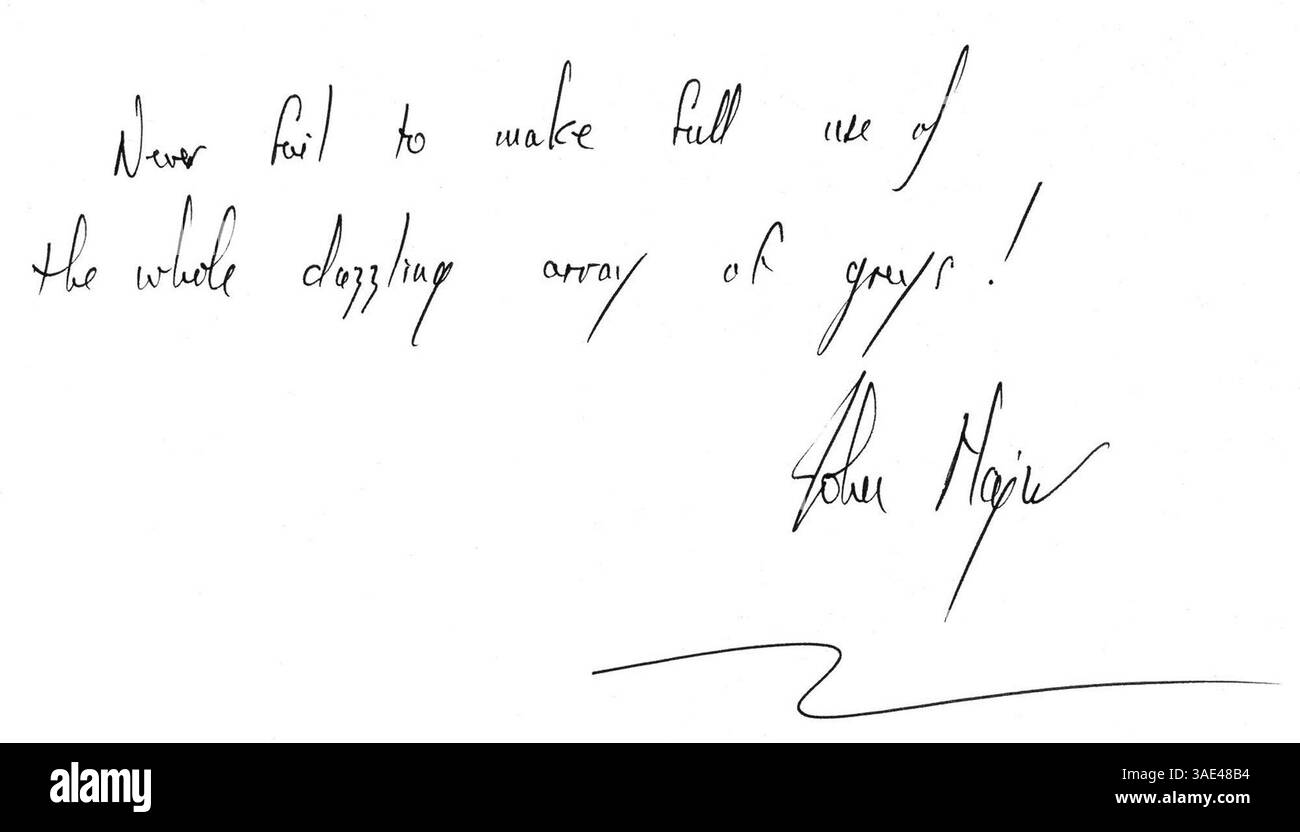 Never fail to make full use of
the whole dazzling array of greys!
John Major
alamy
Image ID: 3AE48B4
www.alamy.com